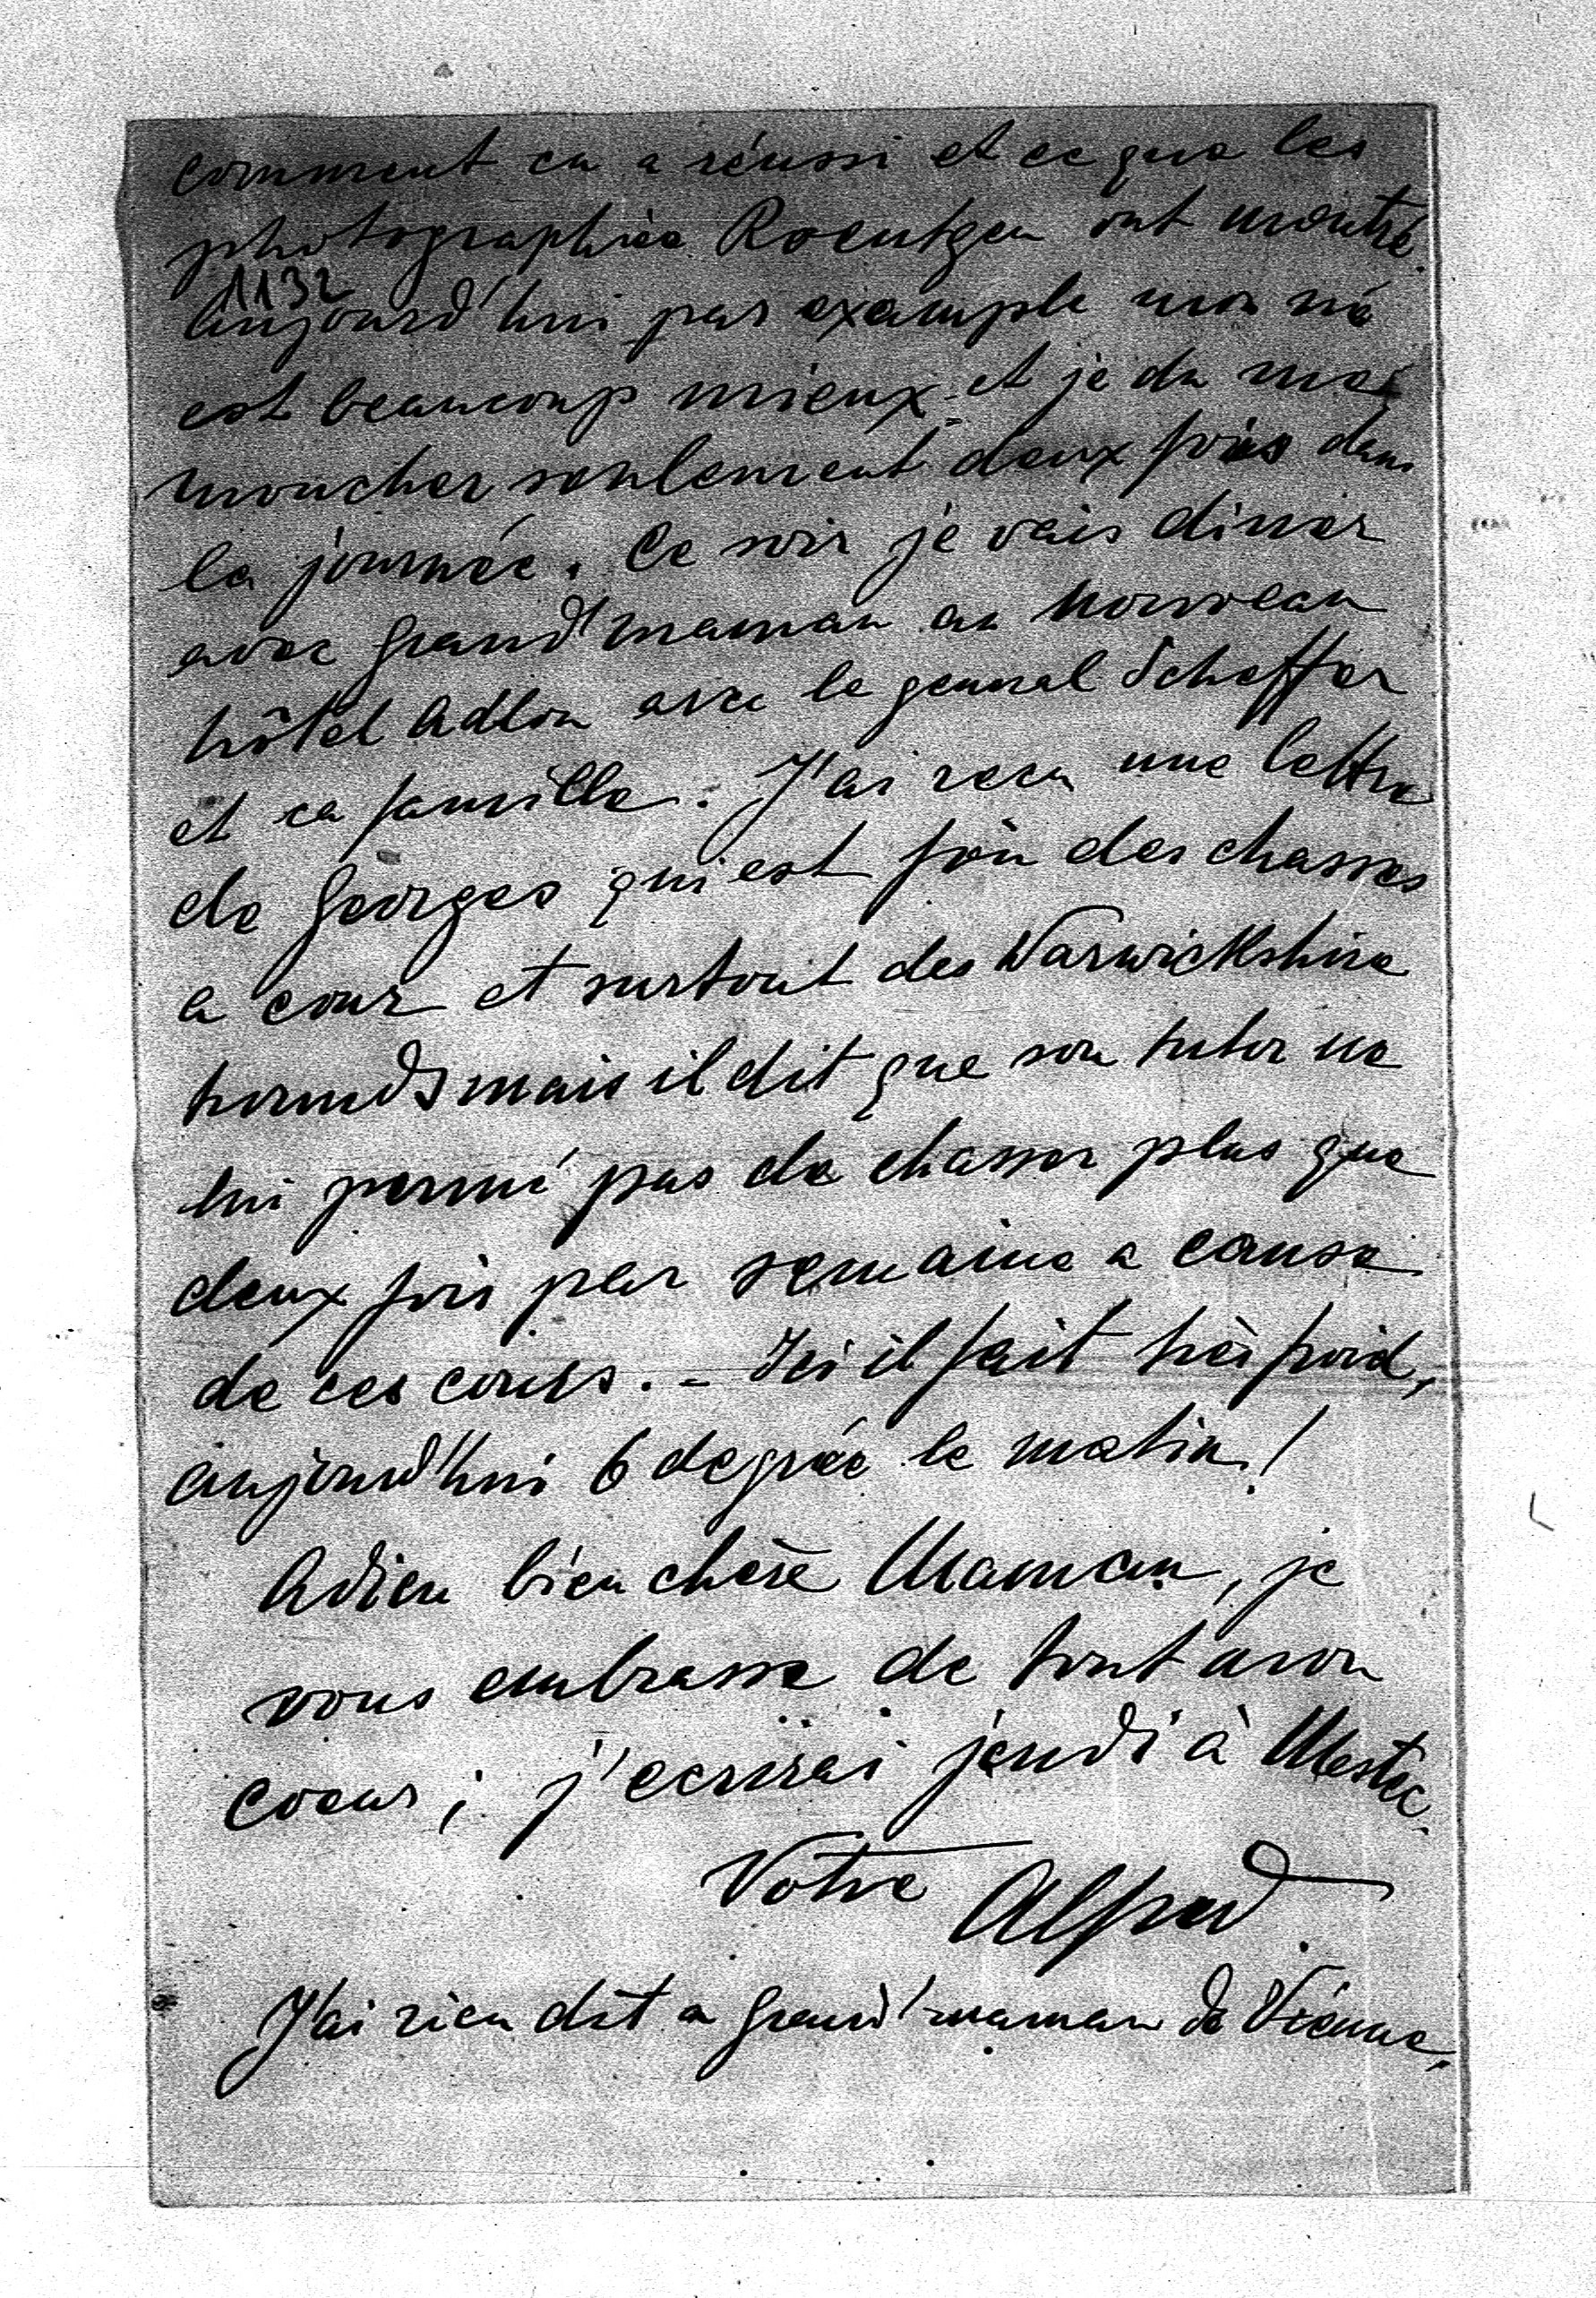 comment ca a réussi et ce que les
photographies Roentgen ont montré.
1132
Aujourd'hui par example mon né
est beaucoup mieux et je du me
moucher seulement deux fois dans
la journée. Ce soir je vais diner
avec Grand'maman au nouveau
hôtel Adlon avec le general Scheffer
et ca famille. J'ai recu une lettre
de Georges qui est fou des chasses
a cour et surtout des Warwickshire
hounds mais il dit que son tutor ne
lui permé pas de chasser plus que
deux fois par semaine a cause
de ces cours. - Ici il fait très froid,
aujourd'hui 6 degrée le matin!
Adieu bien chère Maman, je
vous embrasse de tout mon
coeur; j'ecrirai jeudi à Mestec.
Votre Alfred.
J'ai rien dit a Grand'maman de Vienne.